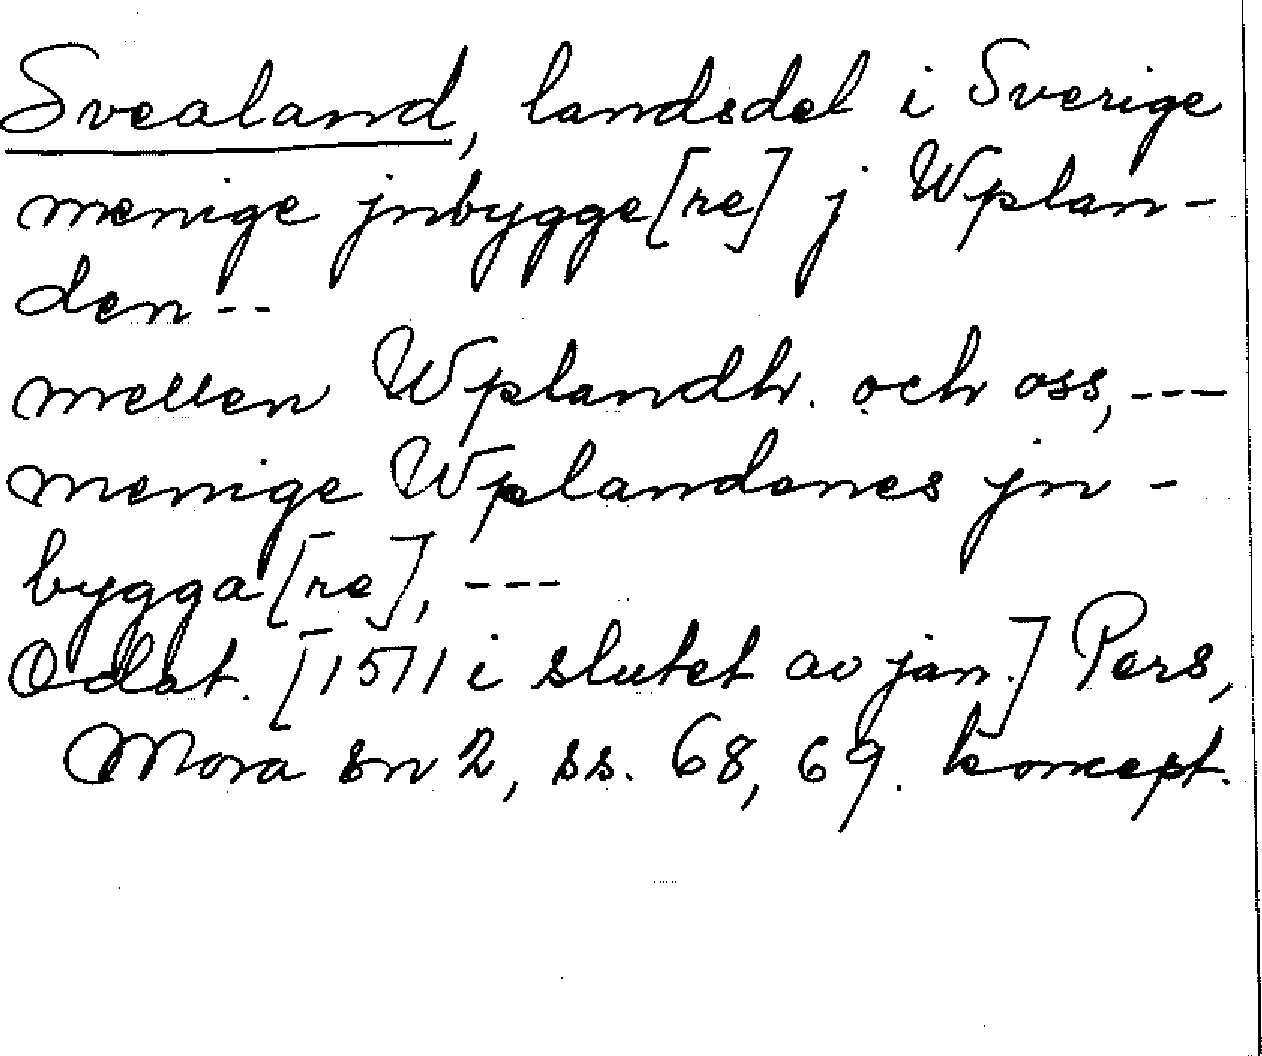 Svealand, landsdel i Sverige
menige jnbygge[re] j Wplan-
den --
mellen Wplandh. och oss, ---
menige Wplandenes jn-
bygga[re], ---
Odat. [1511 i slutet av jan.] Pers,
Mora sn 2, ss. 68, 69. koncept.